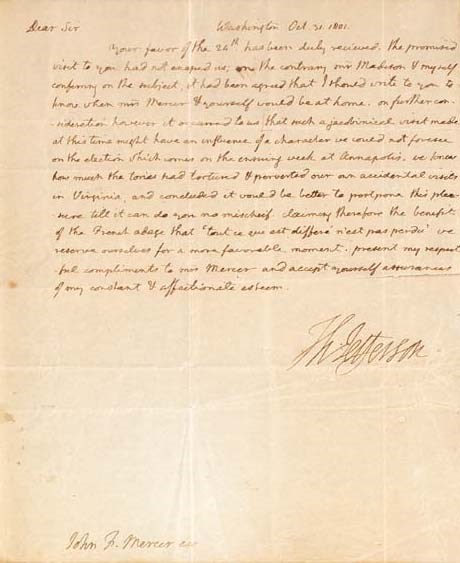 Dear Sir Washington Oct. 31. 1801.
Your favor of the 24th has been duly recieved. the promised
visit to you had not escaped us; on the contrary mr Madison & myself
conferring on the subject, it had been agreed that I should write to you to
know when mrs Mercer & yourself would be at home. on further con-
-sideration however it occurred to us that such a jacobinical visit made
at this time might have an influence of a character we could not foresee
on the election which comes on the ensuing week at Annapolis. we know
how much the tories had tortured & perverted our own accidental visits
in Virginia, and concluded it would be better to postpone this plea-
-sure till it can do you no mischief. claiming therefore the benefit
of the French adage that 'tout ce que est differé n'est pas perdu' we
reserve ourselves for a more favorable moment. present my respect
-ful compliments to mrs Mercer and accept yourself assurances
of my constant & affectionate esteem.
Th: Jefferson
John F. Mercer esq